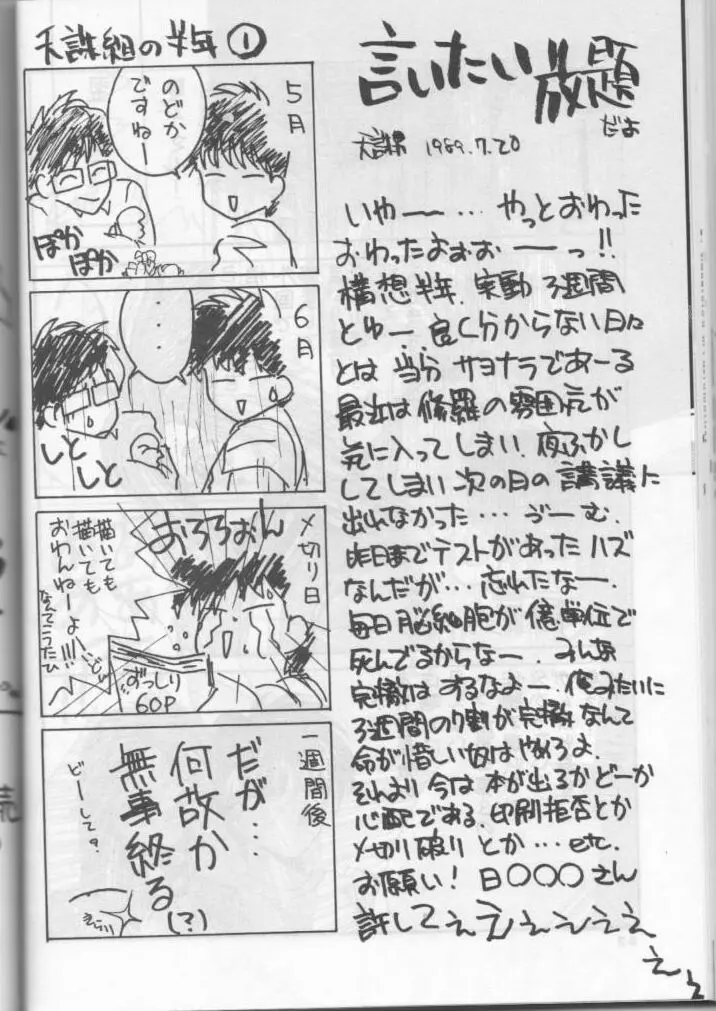 天誅組の半年①
5月
のどか
ですねー
ぽか
ぽか
6月
・・・
しと
しと
〆切り日
おろろぉん
描いても
描いても
おわんねーよー!!!
ずっしり
60P
一週間後
だが…
何故か
無事終る
(?)
どーして?
言いたい放題
だよ
天誅組 1989.7.20
いやー―… やっとおわった
おわったよぉぉー―っ!!
構想半年、実動3週間
とゆー、良く分からない日々
とは当分サヨナラであーる
最近は修羅の雰囲気が
気に入ってしまい、夜ふかし
してしまい次の日の講議に
出れなかった…ゔーむ。
昨日までテストがあったハズ
なんだが…忘れたなー。
毎日脳細胞が億単位で
死んでるからなー。みんな
完徹はするなよー。俺みたいに
3週間の9割が完徹なんて
命が惜しい奴はやめろよ。
それより今は本が出るかどーか
心配である。印刷拒否とか
〆切り破りとか…etc.
お願い!日〇〇〇さん
許してぇえぇぇぇぇ
ぇぇ